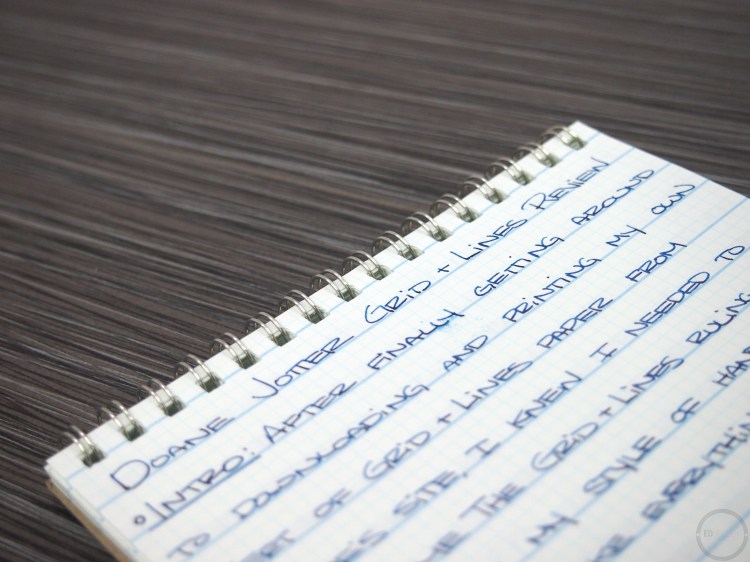 DOANE JOTTER GRID + LINES REVIEW
• INTRO: AFTER FINALLY GETTING AROUND
TO DOWNLOADING AND PRINTING MY OWN
OF GRID + LINES PAPER FROM
SITE, I KNEW I NEEDED TO
THE GRID + LINES RULING
MY STYLE OF
EVERYTHING